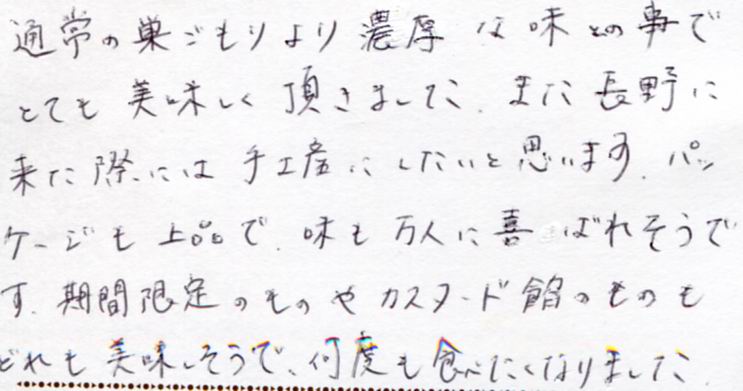 通常の巣ごもりより濃厚な味との事で
とても美味しく頂きました。また長野に
来た際には手土産にしたいと思います。パッ
ケージも上品で、味も万人に喜ばれそうで
す。期間限定のものやカスタード餡のものも
どれも美味しそうで、何度も食べたくなりました